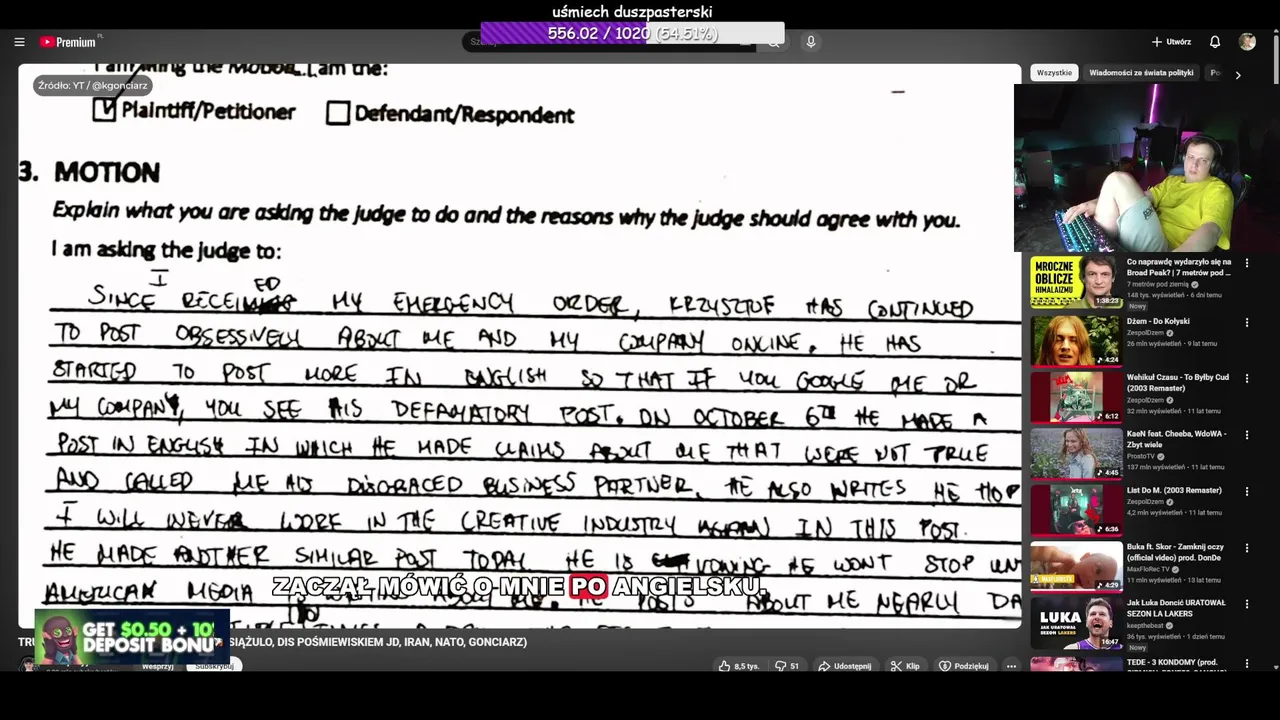 uśmiech duszpasterski
556.02 / 1020 (54.51%)
Premium PL
Utwórz
Źródło: YT / @kgonciarz
I am filing the Motion. I am the:
Plaintiff/Petitioner Defendant/Respondent
3. MOTION
Explain what you are asking the judge to do and the reasons why the judge should agree with you.
I am asking the judge to:
I ED
SINCE RECEI MY EMERGENCY ORDER, KRZYSZTOF HAS CONTINUED
TO POST OBSESSIVELY ABOUT ME AND MY COMPANY ONLINE. HE HAS
STARTED TO POST MORE IN ENGLISH SO THAT IF YOU GOOGLE ME OR
MY COMPANY, YOU SEE HIS DEFAMATORY POST. ON OCTOBER 6TH HE MADE A
POST IN ENGLISH IN WHICH HE MADE CLAIMS ABOUT ME THAT WERE NOT TRUE
AND CALLED ME HIS DISGRACED BUSINESS PARTNER. HE ALSO WRITES HE HOP
I WILL NEVER WORK IN THE CREATIVE INDUSTRY AGAIN IN THIS POST.
HE MADE ANOTHER SIMILAR POST TODAY HE IS WONT STOP UN
AMERICAN MEDIA ABOUT ME. HE POSTS ABOUT ME NEARLY DA
ZACZĄŁ MÓWIĆ O MNIE PO ANGIELSKU.
GET $0.50 + 10
DEPOSIT BONU
TRU SIĄŻULO, DIS POŚMIEWISKIEM JD, IRAN, NATO, GONCIARZ)
Wesprzyj Subskrybuj
8,5 tys. 51 Udostępnij Klip Podziękuj
Wszystkie Wiadomości ze świata polityki Po
MROCZNE OBLICZE HIMALAIZMU
1:38:23
Co naprawdę wydarzyło się na
Broad Peak? | 7 metrów pod ...
7 metrów pod ziemią
148 tys. wyświetleń • 6 dni temu
Nowy
Dżem - Do Kołyski
ZespolDzem
26 mln wyświetleń • 9 lat temu
4:24
Wehikuł Czasu - To Byłby Cud
(2003 Remaster)
ZespolDzem
32 mln wyświetleń • 11 lat temu
6:12
KaeN feat. Cheeba, WdoWA -
Zbyt wiele
ProstoTV
137 mln wyświetleń • 11 lat temu
4:45
List Do M. (2003 Remaster)
ZespolDzem
4,2 mln wyświetleń • 11 lat temu
6:36
Buka ft. Skor - Zamknij oczy
(official video) prod. DonDe
MaxFloRec TV
11 mln wyświetleń • 13 lat temu
4:29
LUKA
JAK URATOWAŁ SEZON LA LAKERS
Jak Luka Doncić URATOWAŁ
SEZON LA LAKERS
keepthebeat
36 tys. wyświetleń • 1 dzień temu
16:47
Nowy
TEDE - 3 KONDOMY (prod.